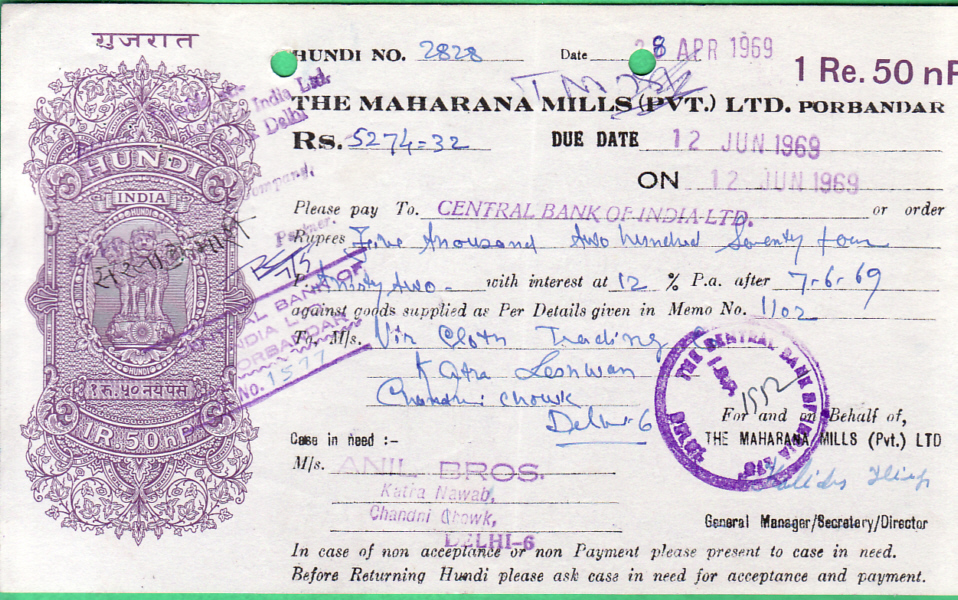 ગુજરાત
HUNDI NO. 2828 Date 28 APR 1969
1 Re. 50 nP
India Ltd.
Delhi
THE MAHARANA MILLS (PVT.) LTD. PORBANDAR
Rs. 5274=32 DUE DATE 12 JUN 1969
ON 12 JUN 1969
HUNDI
INDIA
HUNDI
Please pay To. CENTRAL BANK OF INDIA LTD. or order
Partner.
Rupees Five thousand two hundred Seventy four
P. thirty two - with interest at 12 % P.a. after 7-6-69
against goods supplied as Per Details given in Memo No. 1102
To, M/s. Vir Cloth Trading
Katra Leshwan
Chandni Chowk
Delhi-6
CENTRAL BANK OF
INDIA LTD.
PORBANDAR
NO. 1577
HUNDI
१ रु. ५० नये पैसे
1R. 50 nP.
THE CENTRAL BANK OF INDIA LTD.
DELHI
1552
For and on Behalf of,
THE MAHARANA MILLS (Pvt.) LTD
Case in need :-
M/s. ANIL BROS.
Katra Nawab,
Chandni Chowk,
DELHI-6
General Manager/Secretary/Director
In case of non acceptance or non Payment please present to case in need.
Before Returning Hundi please ask case in need for acceptance and payment.